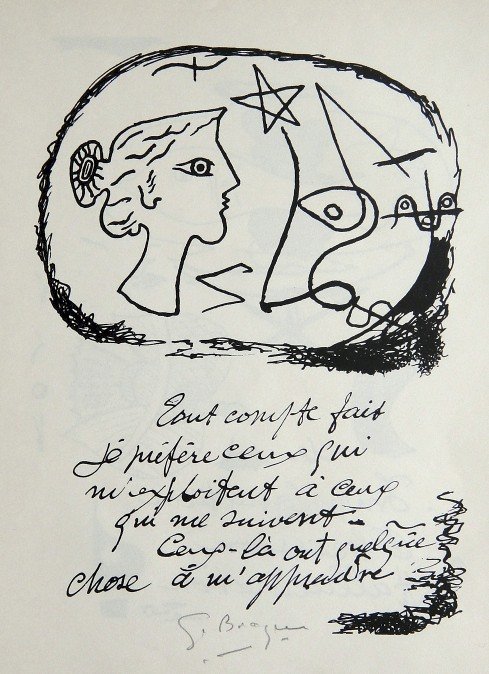 Tout compte fait
je préfère ceux qui
m'exploitent à ceux
qui me suivent.
Ceux-là ont quelque
chose à m'apprendre
G. Braque